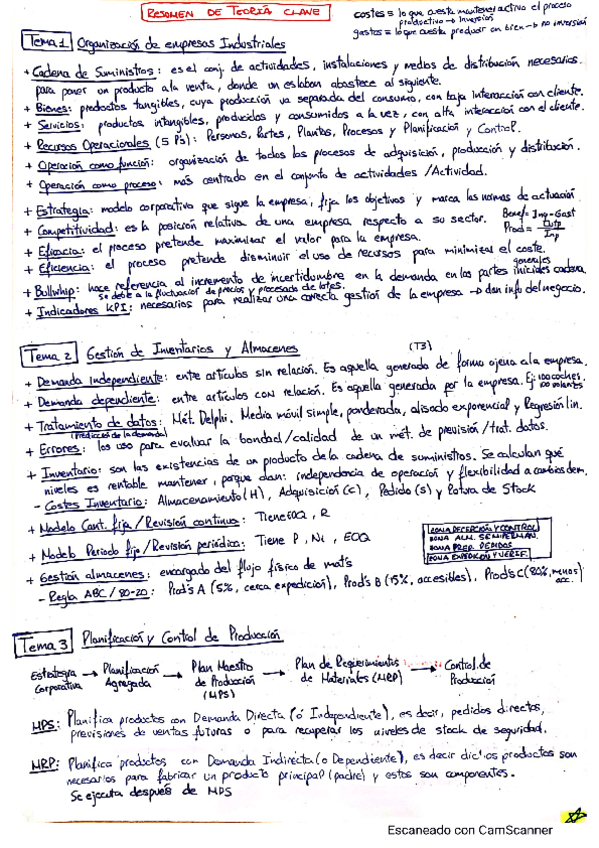 RESUMEN DE TEORÍA CLAVE
costes = lo que cuesta mantener activo el proceso
productivo → Inversión
gastos = lo que cuesta producir un bien → no inversión
Tema 1 Organización de empresas Industriales
+ Cadena de Suministros: es el conj. de actividades, instalaciones y medios de distribución necesarios
para poner un producto a la venta, donde un eslabón abastece al siguiente.
+ Bienes: productos tangibles, cuya producción va separada del consumo, con baja interacción con cliente.
+ Servicios: productos intangibles, producidos y consumidos a la vez, con alta interacción con el cliente.
+ Recursos Operacionales (5 Ps): Personas, Partes, Plantas, Procesos y Planificación y Control.
+ Operación como función: organización de todos los procesos de adquisición, producción y distribución.
+ Operación como proceso: más centrado en el conjunto de actividades / Actividad.
+ Estrategia: modelo corporativo que sigue la empresa, fija los objetivos y marca las normas de actuación
+ Competitividad: es la posición relativa de una empresa respecto a su sector.
Benef = Inp - Gast
Prod = Outp / Inp
+ Eficacia: el proceso pretende maximizar el valor para la empresa.
+ Eficiencia: el proceso pretende disminuir el uso de recursos para minimizar el coste.
generales
+ Bullwhip: hace referencia al incremento de incertidumbre en la demanda en las partes iniciales cadena.
se debe a la fluctuación de precios y procesado de lotes.
+ Indicadores KPI: necesarios para realizar una correcta gestión de la empresa → dan info del negocio.
Tema 2 Gestión de Inventarios y Almacenes
(T3)
+ Demanda independiente: entre artículos sin relación. Es aquella generada de forma ajena a la empresa.
+ Demanda dependiente: entre artículos con relación. Es aquella generada por la empresa. Ej: 100 coches, 100 volantes
+ Tratamiento de datos: Mét. Delphi. Media móvil simple, ponderada, alisado exponencial y Regresión lin.
(Predicción de la demanda)
+ Errores: los uso para evaluar la bondad/calidad de un mét. de previsión/trat. datos.
+ Inventario: son las existencias de un producto de la cadena de suministros. Se calculan qué
niveles es rentable mantener, porque dan: independencia de operación y flexibilidad a cambios dem.
- Costes Inventario: Almacenamiento (H), Adquisición (C), Pedido (S) y Rotura de Stock
+ Modelo Cant. fija / Revisión continua: Tiene EOQ, R
+ Modelo Periodo fijo / Revisión periódica: Tiene P, Ni, EOQ
ZONA RECEPCIÓN Y CONTROL
ZONA ALM. SEMIPERMAN.
ZONA PREP. PEDIDOS
ZONA EXPEDICIÓN Y VERIF.
+ Gestión almacenes: encargado del flujo físico de mat's
- Regla ABC / 80-20: Prod's A (5%, cerca expedición), Prod's B (15%, accesibles), Prod's C (80%, menos acc.)
Tema 3 Planificación y Control de Producción
Estrategia Corporativa → Planificación Agregada → Plan Maestro de Producción (MPS) → Plan de Requerimientos de Materiales (MRP) → Control de Producción
MPS: Planifica productos con Demanda Directa (ó Independiente), es decir, pedidos directos,
previsiones de ventas futuras o para recuperar los niveles de stock de seguridad.
MRP: Planifica productos con Demanda Indirecta (o Dependiente), es decir dichos productos son
necesarios para fabricar un producto principal (padre) y estos son componentes.
Se ejecuta después de MPS
Escaneado con CamScanner